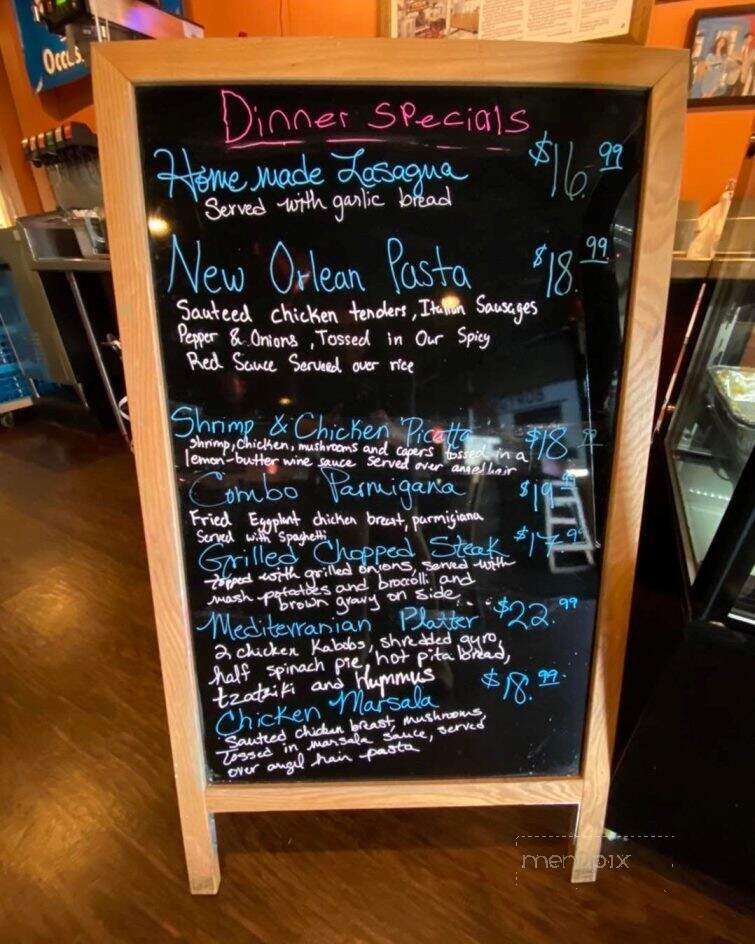 Dinner Specials
Home made Lasagna $16.99
Served with garlic bread
New Orlean Pasta $18.99
Sauteed chicken tenders, Italian Sausages
Pepper & Onions, Tossed in Our Spicy
Red Sauce Served over rice
Shrimp & Chicken Picatta $18.99
Shrimp, Chicken, mushrooms and capers tossed in a
lemon-butter wine sauce served over angel hair
Combo Parmigana $19.99
Fried Eggplant chicken breast, parmigiana
Served with Spaghetti
Grilled Chopped Steak $17.99
topped with grilled onions, served with
mash potatoes and broccoli and
brown gravy on side
Mediterranian Platter $22.99
2 chicken Kabobs, shredded gyro,
half spinach pie, hot pita bread,
tzatziki and Hummus
Chicken Marsala $18.99
Sauteed chicken breast, mushrooms,
Tossed in marsala sauce, served
over angel hair pasta
menupix